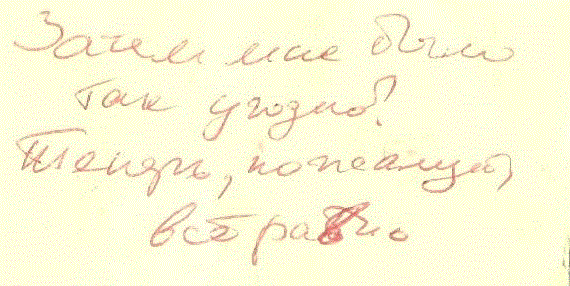 Зачем мне было
так угодно?
Теперь, пожалуй,
всё равно